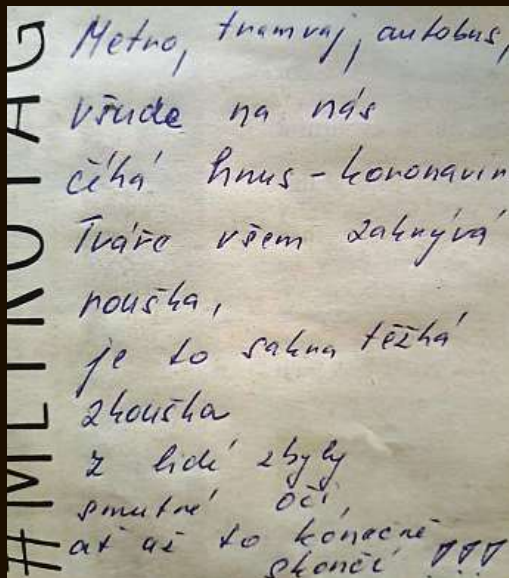 #METROTAG
Metro, tramvaj, autobus,
všude na nás
číhá hnus-koronavir
Tváře všem zakrývá
rouška,
je to sakra těžká
zkouška
z lidí zbyly
smutné oči,
ať už to konečně
skončí !!!